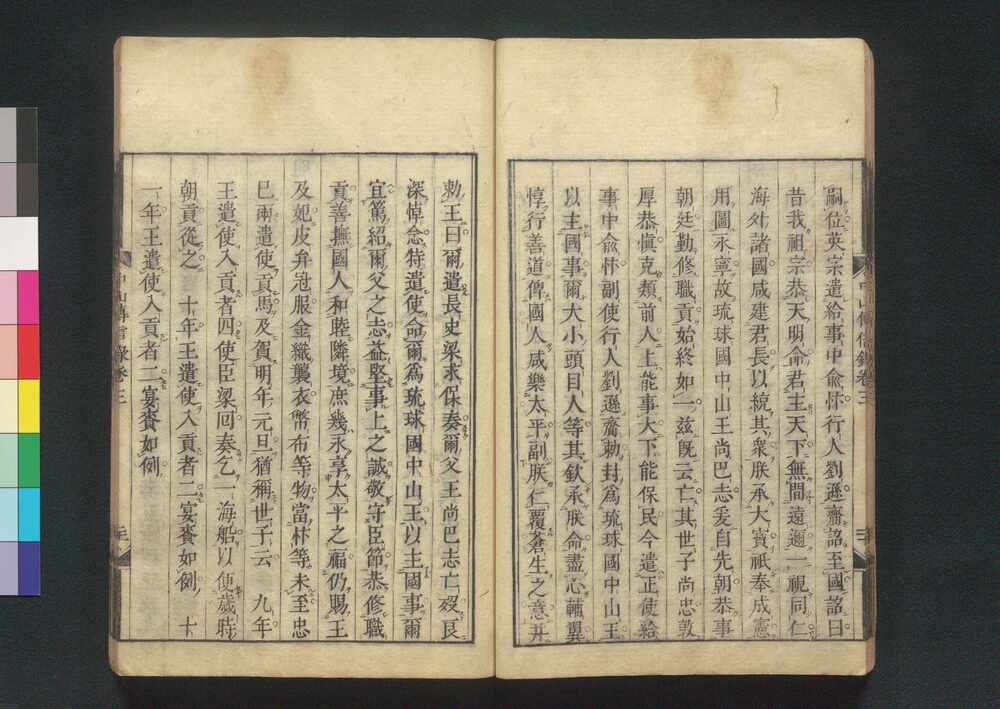 嗣位英宗遣給事中兪忭行人劉遜齎詔至國詔曰
昔我祖宗恭天明命君主天下無間遠邇一視同仁
海外諸國咸建君長以統其衆朕承大寳祇奉成憲
用圖永寧故琉球國中山王尚巴志爰自先朝恭事
朝廷勤修職貢始終如一玆旣云亡其世子尚忠敦
厚恭愼克類前人上能事大下能保民今遣正使給
事中兪忭副使行人劉遜齎勅封爲琉球國中山王
以主國事爾大小頭目人等其欽承朕命盡心輔翼
惇行善道俾國人咸樂太平副朕仁覆蒼生之意幷
中山傳信錄卷三
勅王曰爾遣長史梁求保奏爾父王尚巴志亡歿良
深悼念特遣使命爾爲琉球國中山王以主國事爾
宜篤紹爾父之志益堅事上之誠敬守臣節恭修職
貢善撫國人和睦隣境庶幾永享太平之福仍賜王
及妃皮弁冠服金織襲衣幣布等物當忭等未至忠
巳兩遣使貢馬及賀明年元旦猶稱世子云　九年
王遣使入貢者四使臣梁回奏乞一海船以便歲時
朝貢從之　十年王遣使入貢者二宴賚如例　十
一年王遣使入貢者二宴賚如例
中山傳信錄卷三